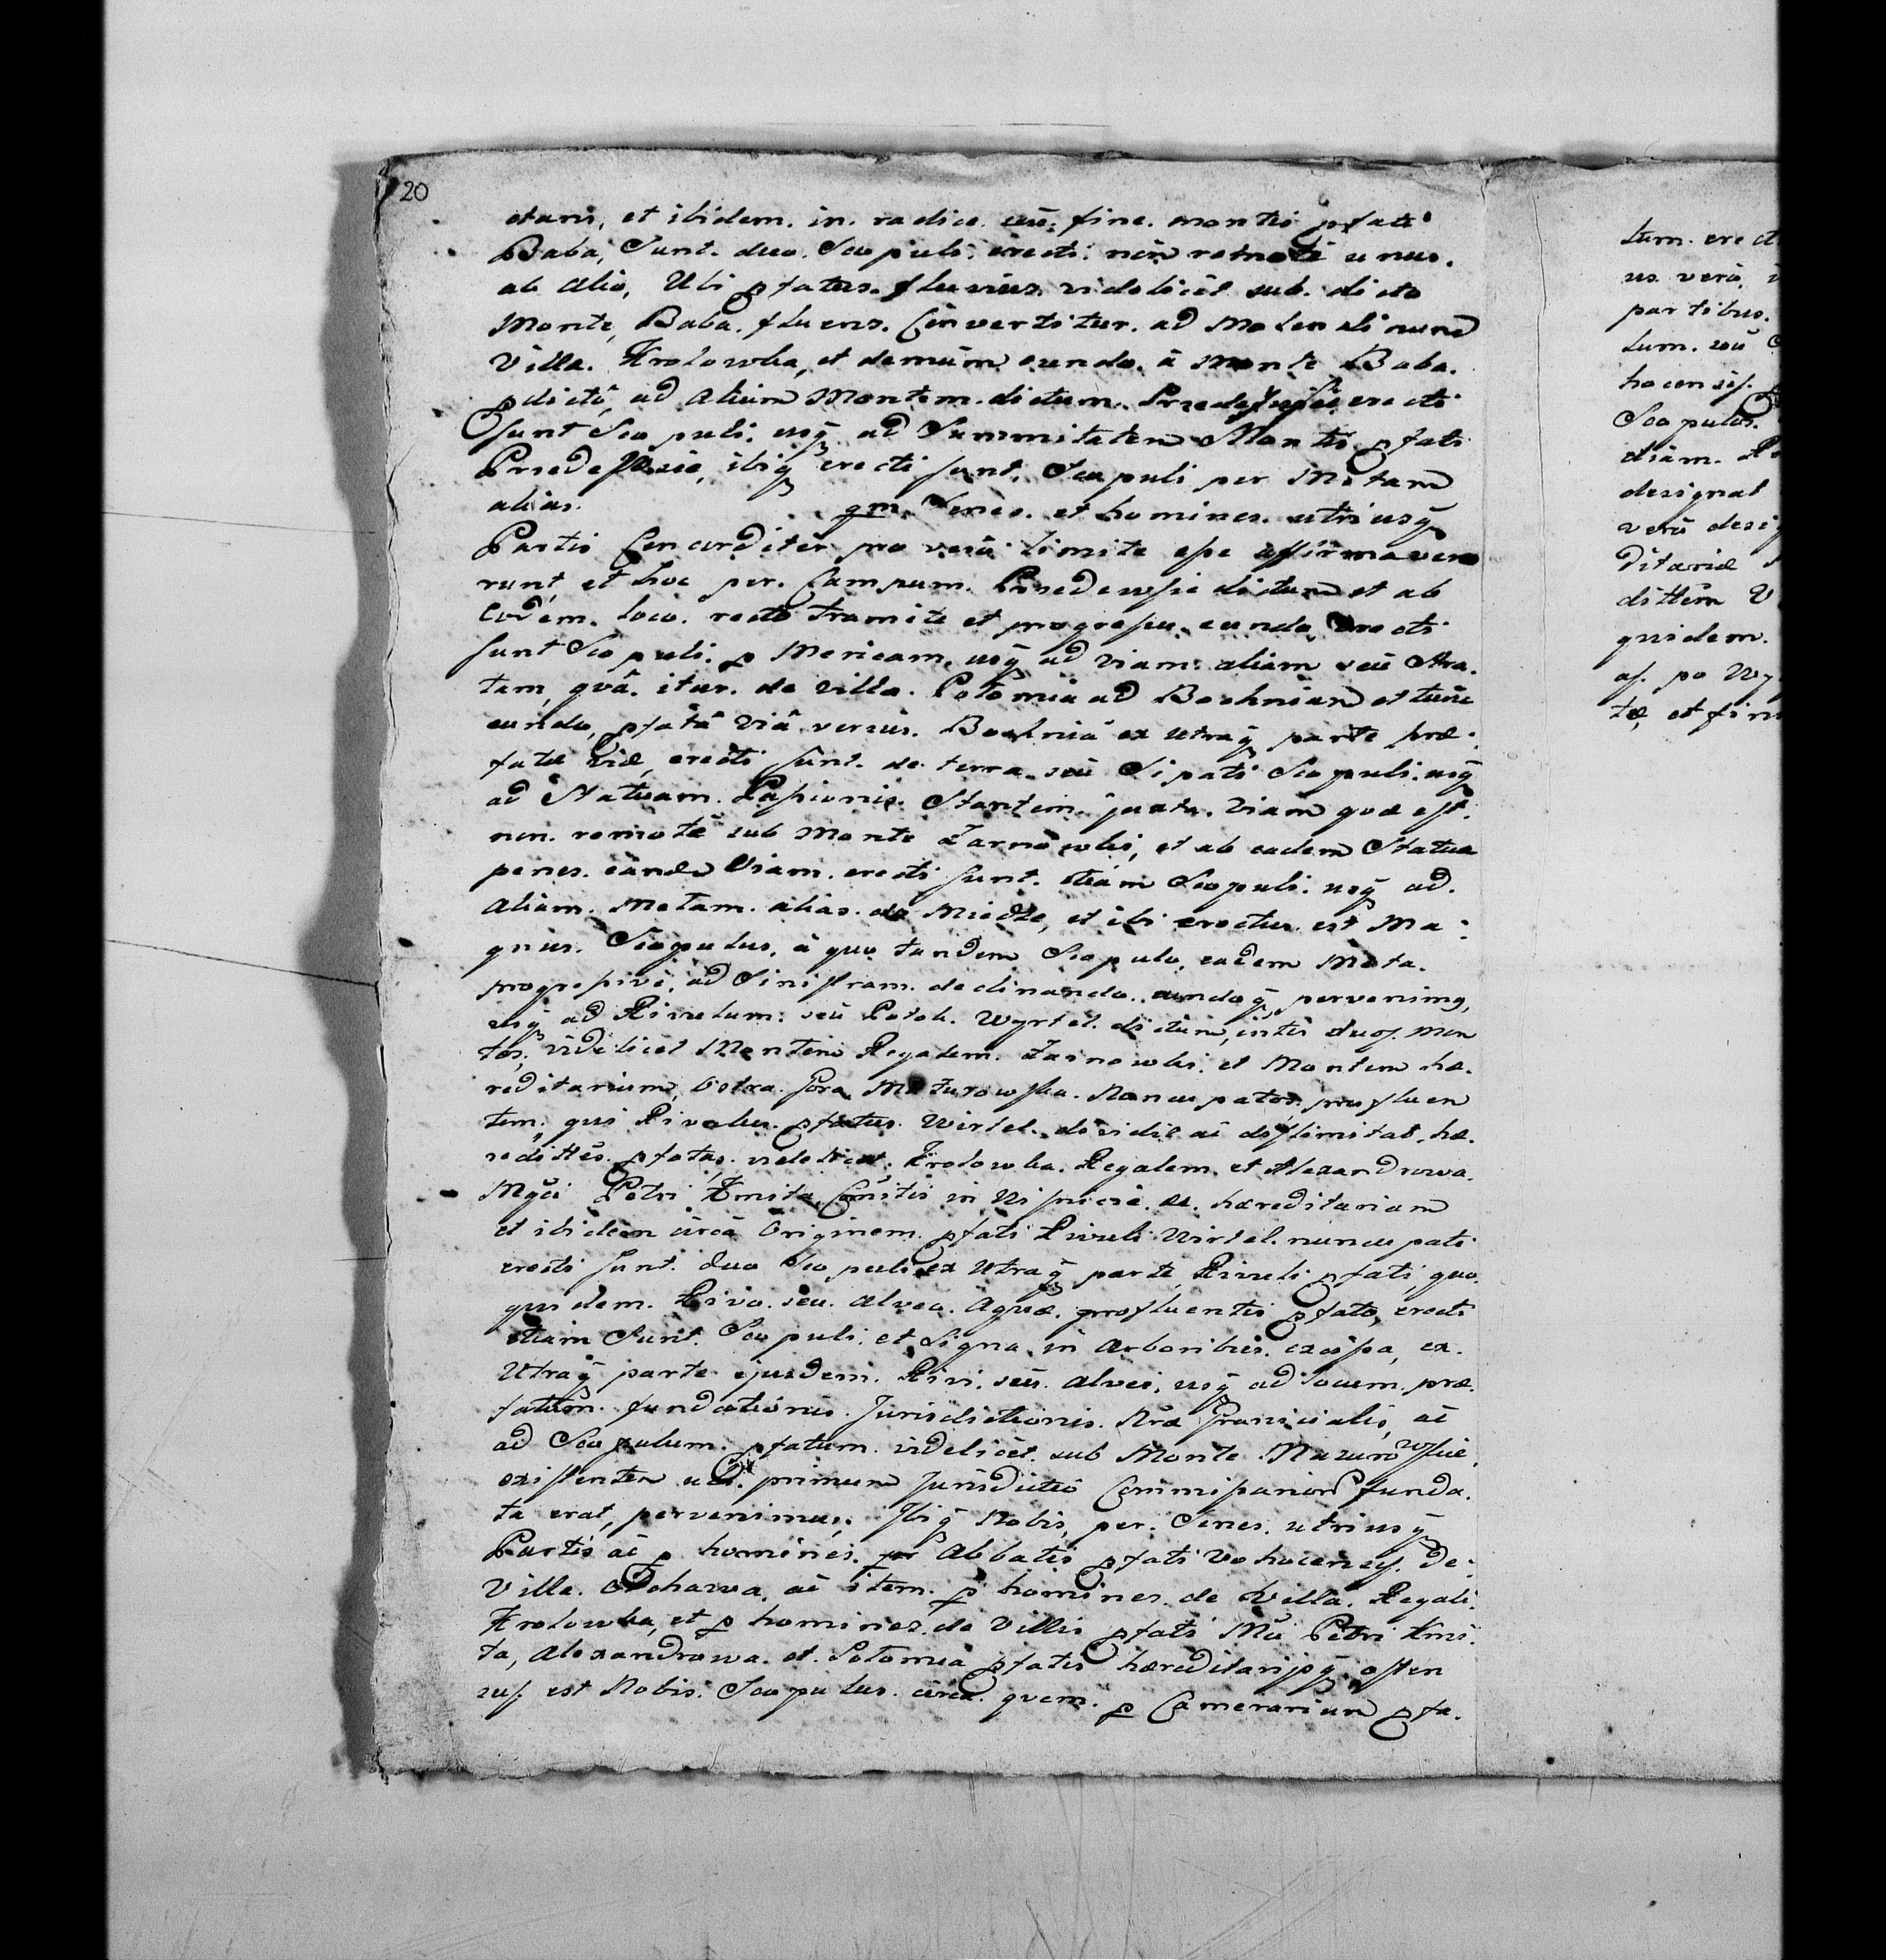 20
etans, et ibidem. in. radice. seu. fine. montis pfati
Baba, Sunt. duo. Scopuli. erecti. non remote unus.
ab alio, Ubi pfatus. fluvius. videlicet sub. dicto
Monte, Baba. fluens. Convertitur. ad Molendinum
Villa. Krolowka, et demum eundo. à Monte Baba.
pdictô, ad alium Montem. dictum. erecti
Sunt Scopuli. usq ad Summitatem Montis pfati
ibiq erecti sunt. Scopuli per Metam
alias. qm Senes. et homines. utriusq
Partis Concorditer pro vero limite esse affirmave
runt, et hoc per. Campum. dictum et ab
Eodem. loco. recto tramite et progressu. eundo, Erecti
Sunt Scopuli. p Mericam, usq ad viam. aliam seu Stra.
tam, qvâ. itur. de villa. Potomia ad Bochniam et tunc
eundo, pfatâ Viâ versus. Bochniã ex utraq parte præ.
fatæ viæ, erecti sunt. de terra. seu Sipati Scopuli. usq
ad Statuam. Passionis. Stantem. juxta. Viam qvæ est.
non. remote sub Monte et ab eadem Statua
penes. eandem Viam. erecti sunt. etiam Scopuli. usq ad.
aliam. Metam. alias. do Miedze, et ibi erectus est Ma.
gnus. Scopulus. à quo tandem Scopulo, eadem Meta.
progressive, ad Sinistram. declinando. eundoq pervenimq,
usq ad Rivulum. seu Potok. Wyrtel. dictum, inter duos. Mon
tes, videlicet Montem Regalem. et Montem hæ.
reditarium, Ostra. Gora profluen
tem, qui Rivulus. pfatus. Wirtel. dividit ac distimitat. hæ.
reditãs. pfatas, videlicet. Krolowka. Regalem. et Alexandrowa.
Mgci Petri Kmita Comitis in Wisnicze. &. hæreditariam
et ibidem circa Originem. pfati Rivuli Wirtel. nuncupati
erecti sunt. duo Scopuli ex Utraq parte Rivuli pfati, quo.
quidem. Rivo. seu. alveo. aquæ. profluentis pfato, erecti
etiam Sunt. Scopuli. et Signa in Arboribus. excissa, ex.
Utraq parte ejusdem. Rivi. seu. alvei. usq ad locum. præ.
fatum. fundationis. Jurisdictionis. Nræ Granicialis, ac
ad Scopulum. pfatum. videlicet. sub Monte
existentem ubi. primum Jurisdictio Commissariorũ funda.
ta erat, pervenimus. Ibiq Nobis, per. Senes. utriusq
Partis ac p homines. Abbatis pfati de.
Villa. ac item. p homines. de Villa. Regali.
Krolowka, et p homines. de Villis pfati Mci Petri Kmi.
ta, Alexandrowa. et. Potomia pfatis hæreditarijsq osten
sus. est Nobis. Scopulus. circa. qvem. p Camerarium pfa.
tum. erect
us. verò,
partibus.
tum. seu
hocensis.
Scopulos.
etiam.
designat
verò desig
ditariæ
quidem.
tæ, et fin